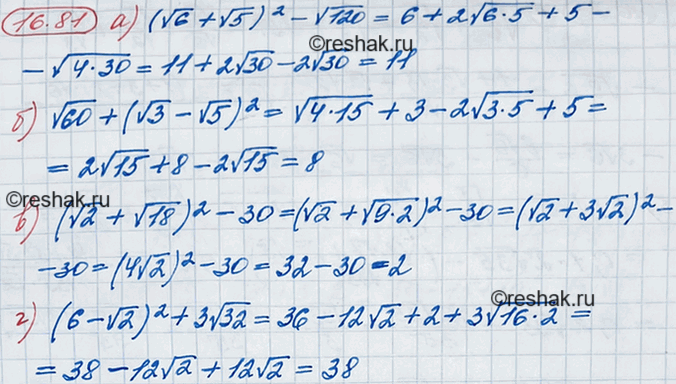 16.81 а) (√6 + √5)² - √120 = 6 + 2√6·5 + 5 -
©reshak.ru
- √4·30 = 11 + 2√30 - 2√30 = 11
б) √60 + (√3 - √5)² = √4·15 + 3 - 2√3·5 + 5 =
= 2√15 + 8 - 2√15 = 8
©reshak.ru
в) (√2 + √18)² - 30 = (√2 + √9·2)² - 30 = (√2 + 3√2)² -
- 30 = (4√2)² - 30 = 32 - 30 = 2
©reshak.ru
г) (6 - √2)² + 3√32 = 36 - 12√2 + 2 + 3√16·2 =
= 38 - 12√2 + 12√2 = 38